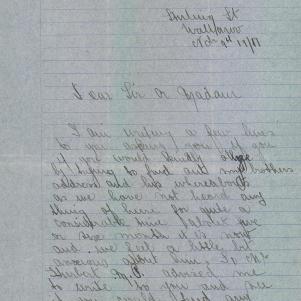 St
Nov 9th 1917
Dear Sir or Madam
I am writing a few lines
to you asking you if you
if you would kindly oblige
by trying to find out my brothers
address and his whereabouts
as we have not heard any
thing of him for quite a
considerable time
or six months it is now
and we feel a little bit
anxious about him,
M.P. advised me
to write to you and see
if you could